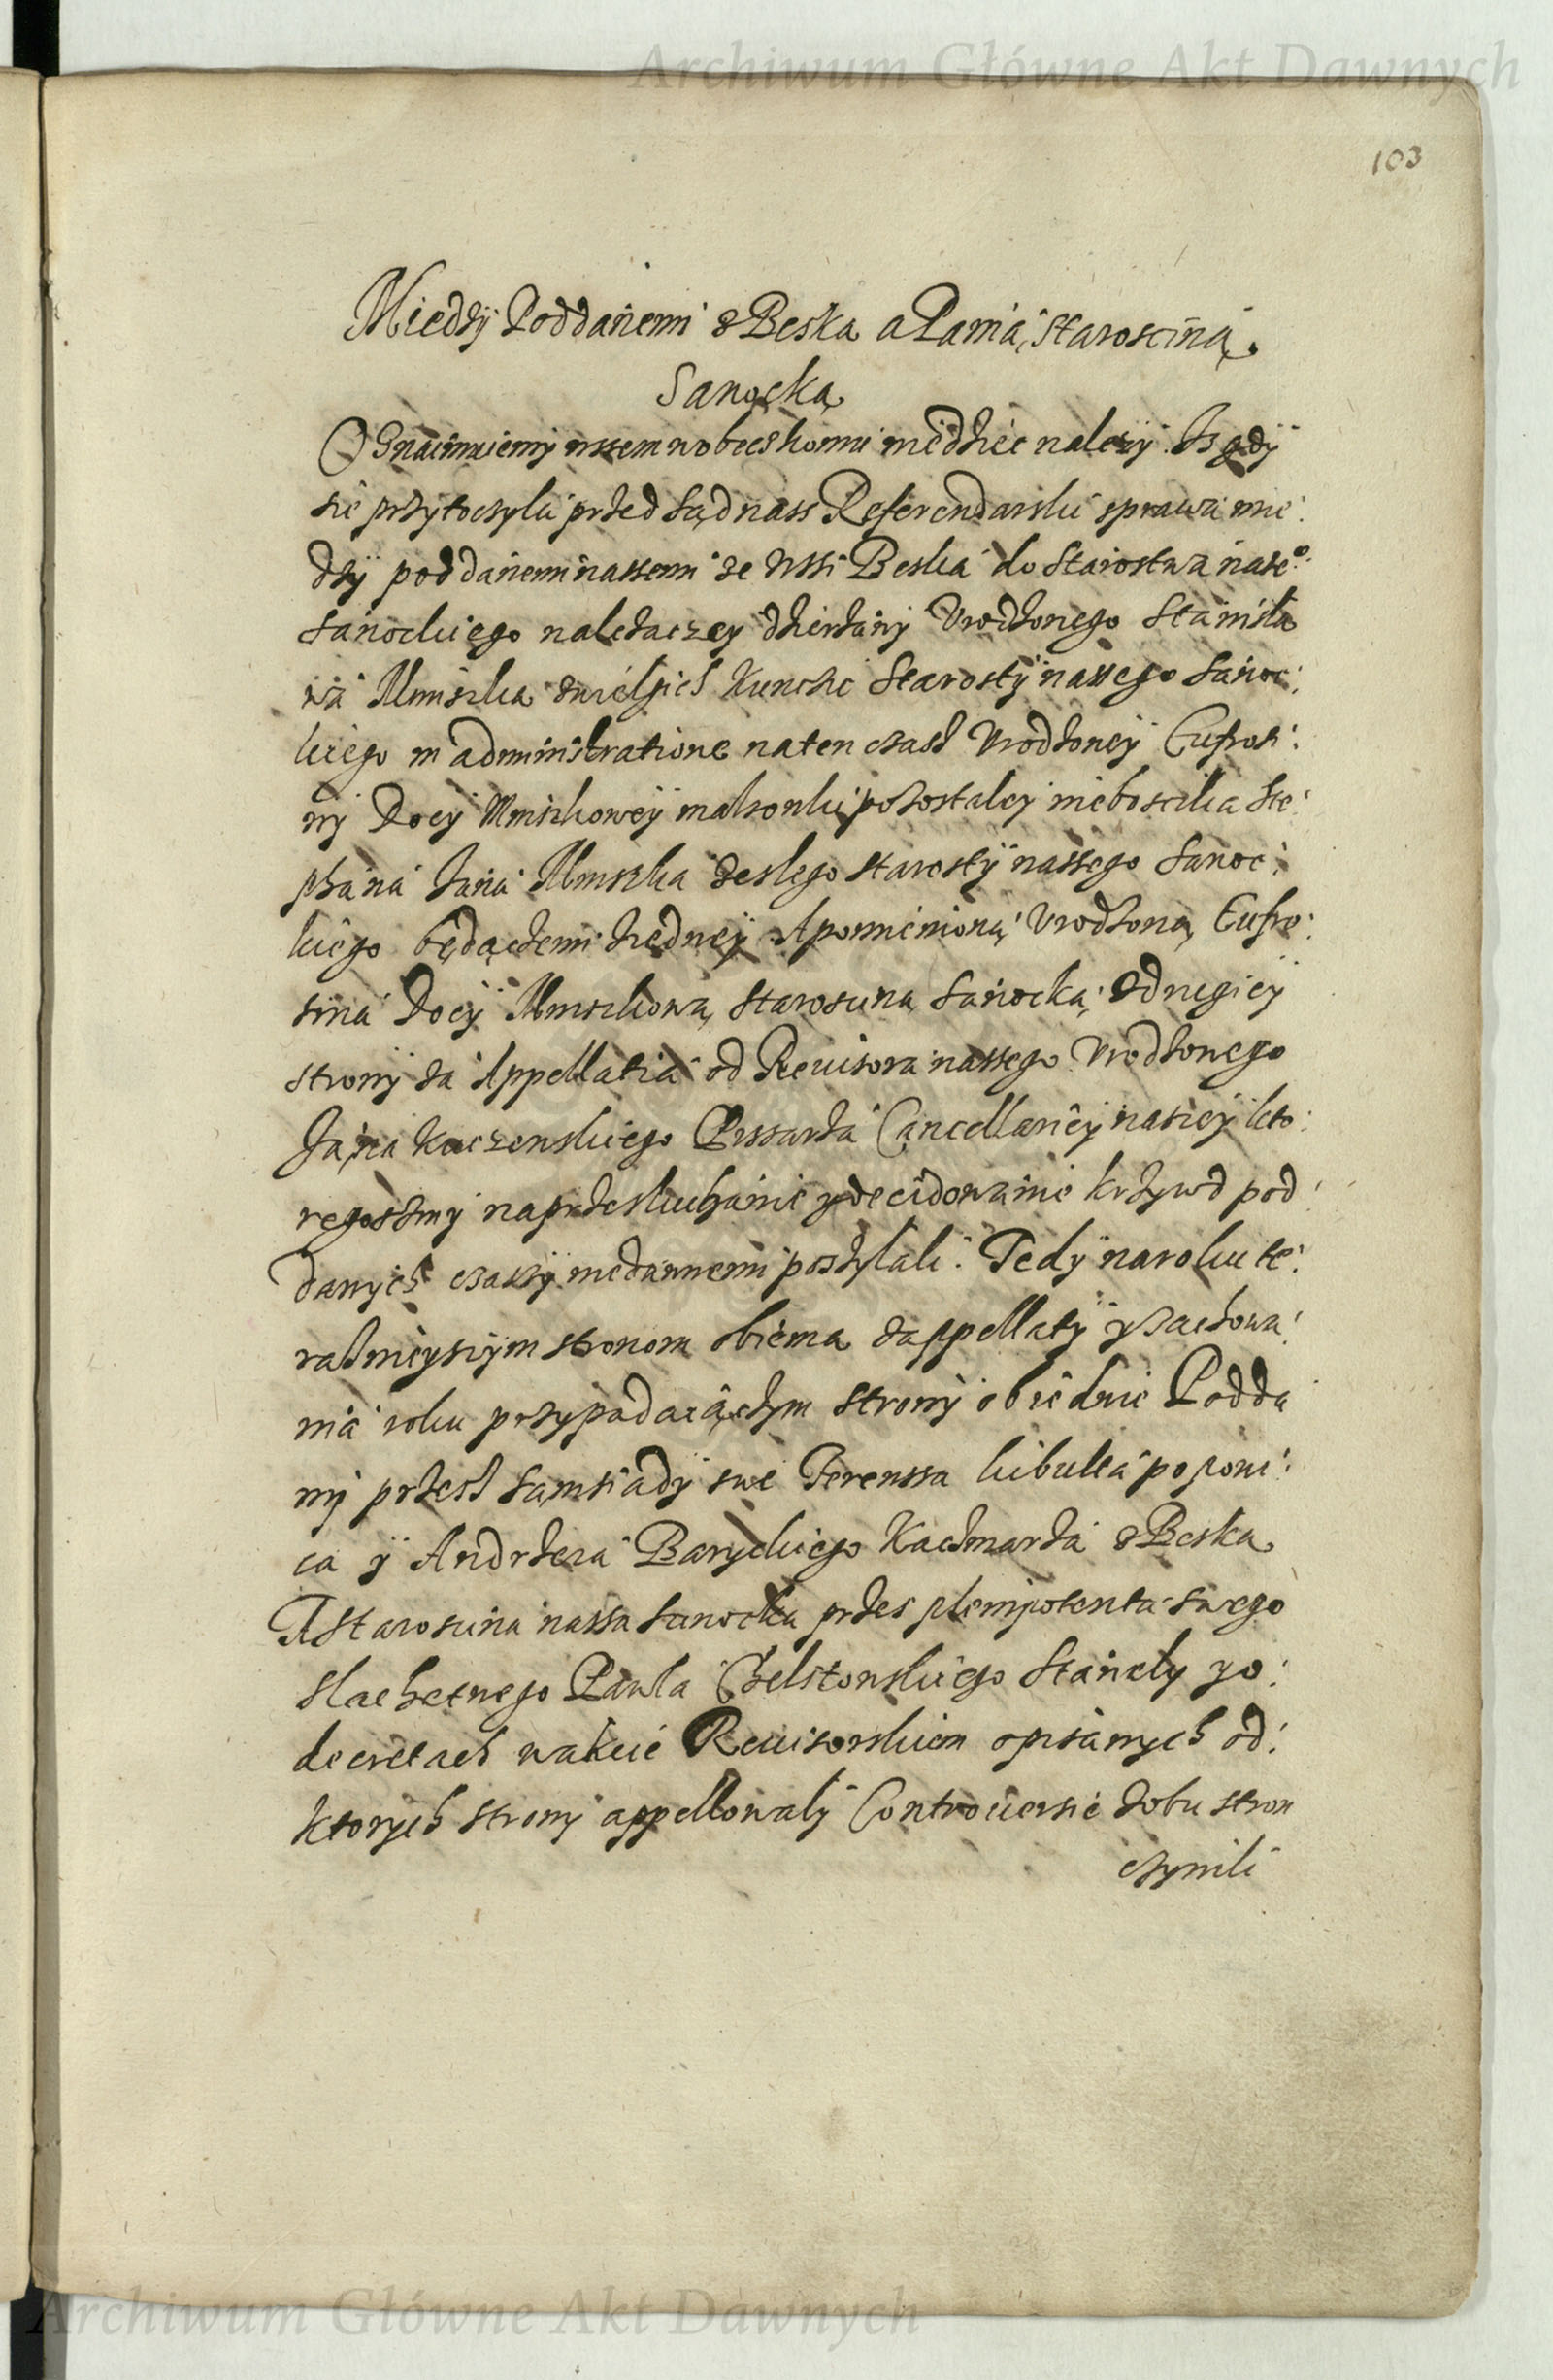 Archiwum Główne Akt Dawnych
103
Miedzÿ Poddanemi z Beska a Panią Staroscíną
Sanocką
Oznaimuiemÿ wssem wobec komu wiedziec nalezÿ Iz gdÿ
sie przÿtoczyla przed sąd nass Referendarski sprawa mie:
dzÿ poddanemi nassemi ze wssi Beska do Starostwa nasze°
Sanockiego nalezaczey dzierzawÿ Urodzonego Stanisla
wa Mniszka zwielgich Kunczic Starostÿ nassego Sanoc:
kiego in administratione naten czasz Urodzoneÿ Eufrosi:
nÿ Docÿ Mniszkoweÿ malzonki pozostaleÿ nieboscika Ste:
phana Jana Mniszka zeslego starostÿ nassego Sanoc:
kiego będączemi zedneÿ A pomienioną Urodzoną Eufro:
sina Docÿ Mniszkową Starosciną Sanocką zdrugieÿ
stronÿ za Appellatia od Reuisora nassego Urodzonego
Jana Kaczenskiego Pissarza Cancellarieÿ nasseÿ kto:
regosmÿ na przesluchanie y decidowanie krzywd pod:
danych czassÿ niedawnemi poszÿlali. Tedÿ na roku te:
raznieyszÿm stronom obiema z appellatÿ y zachowa:
nia roku przypadaiączÿm stronÿ obiedwie Podda
nÿ przesz sąmsiadÿ swe Ferenssa kibulta popowi:
ca ÿ Andrzeia Baryckiego Kaczmarza z Beska
A Starosicina nassa Sanocka przes plenipotenta swego
slachetnego Pawla Chelstowskiego Stanely y o:
decretach wakcie Reuisorskiem opisanych od:
ktorych stronÿ appellowalÿ Controuersie zobu stron
czynili
Archiwum Główne Akt Dawnych